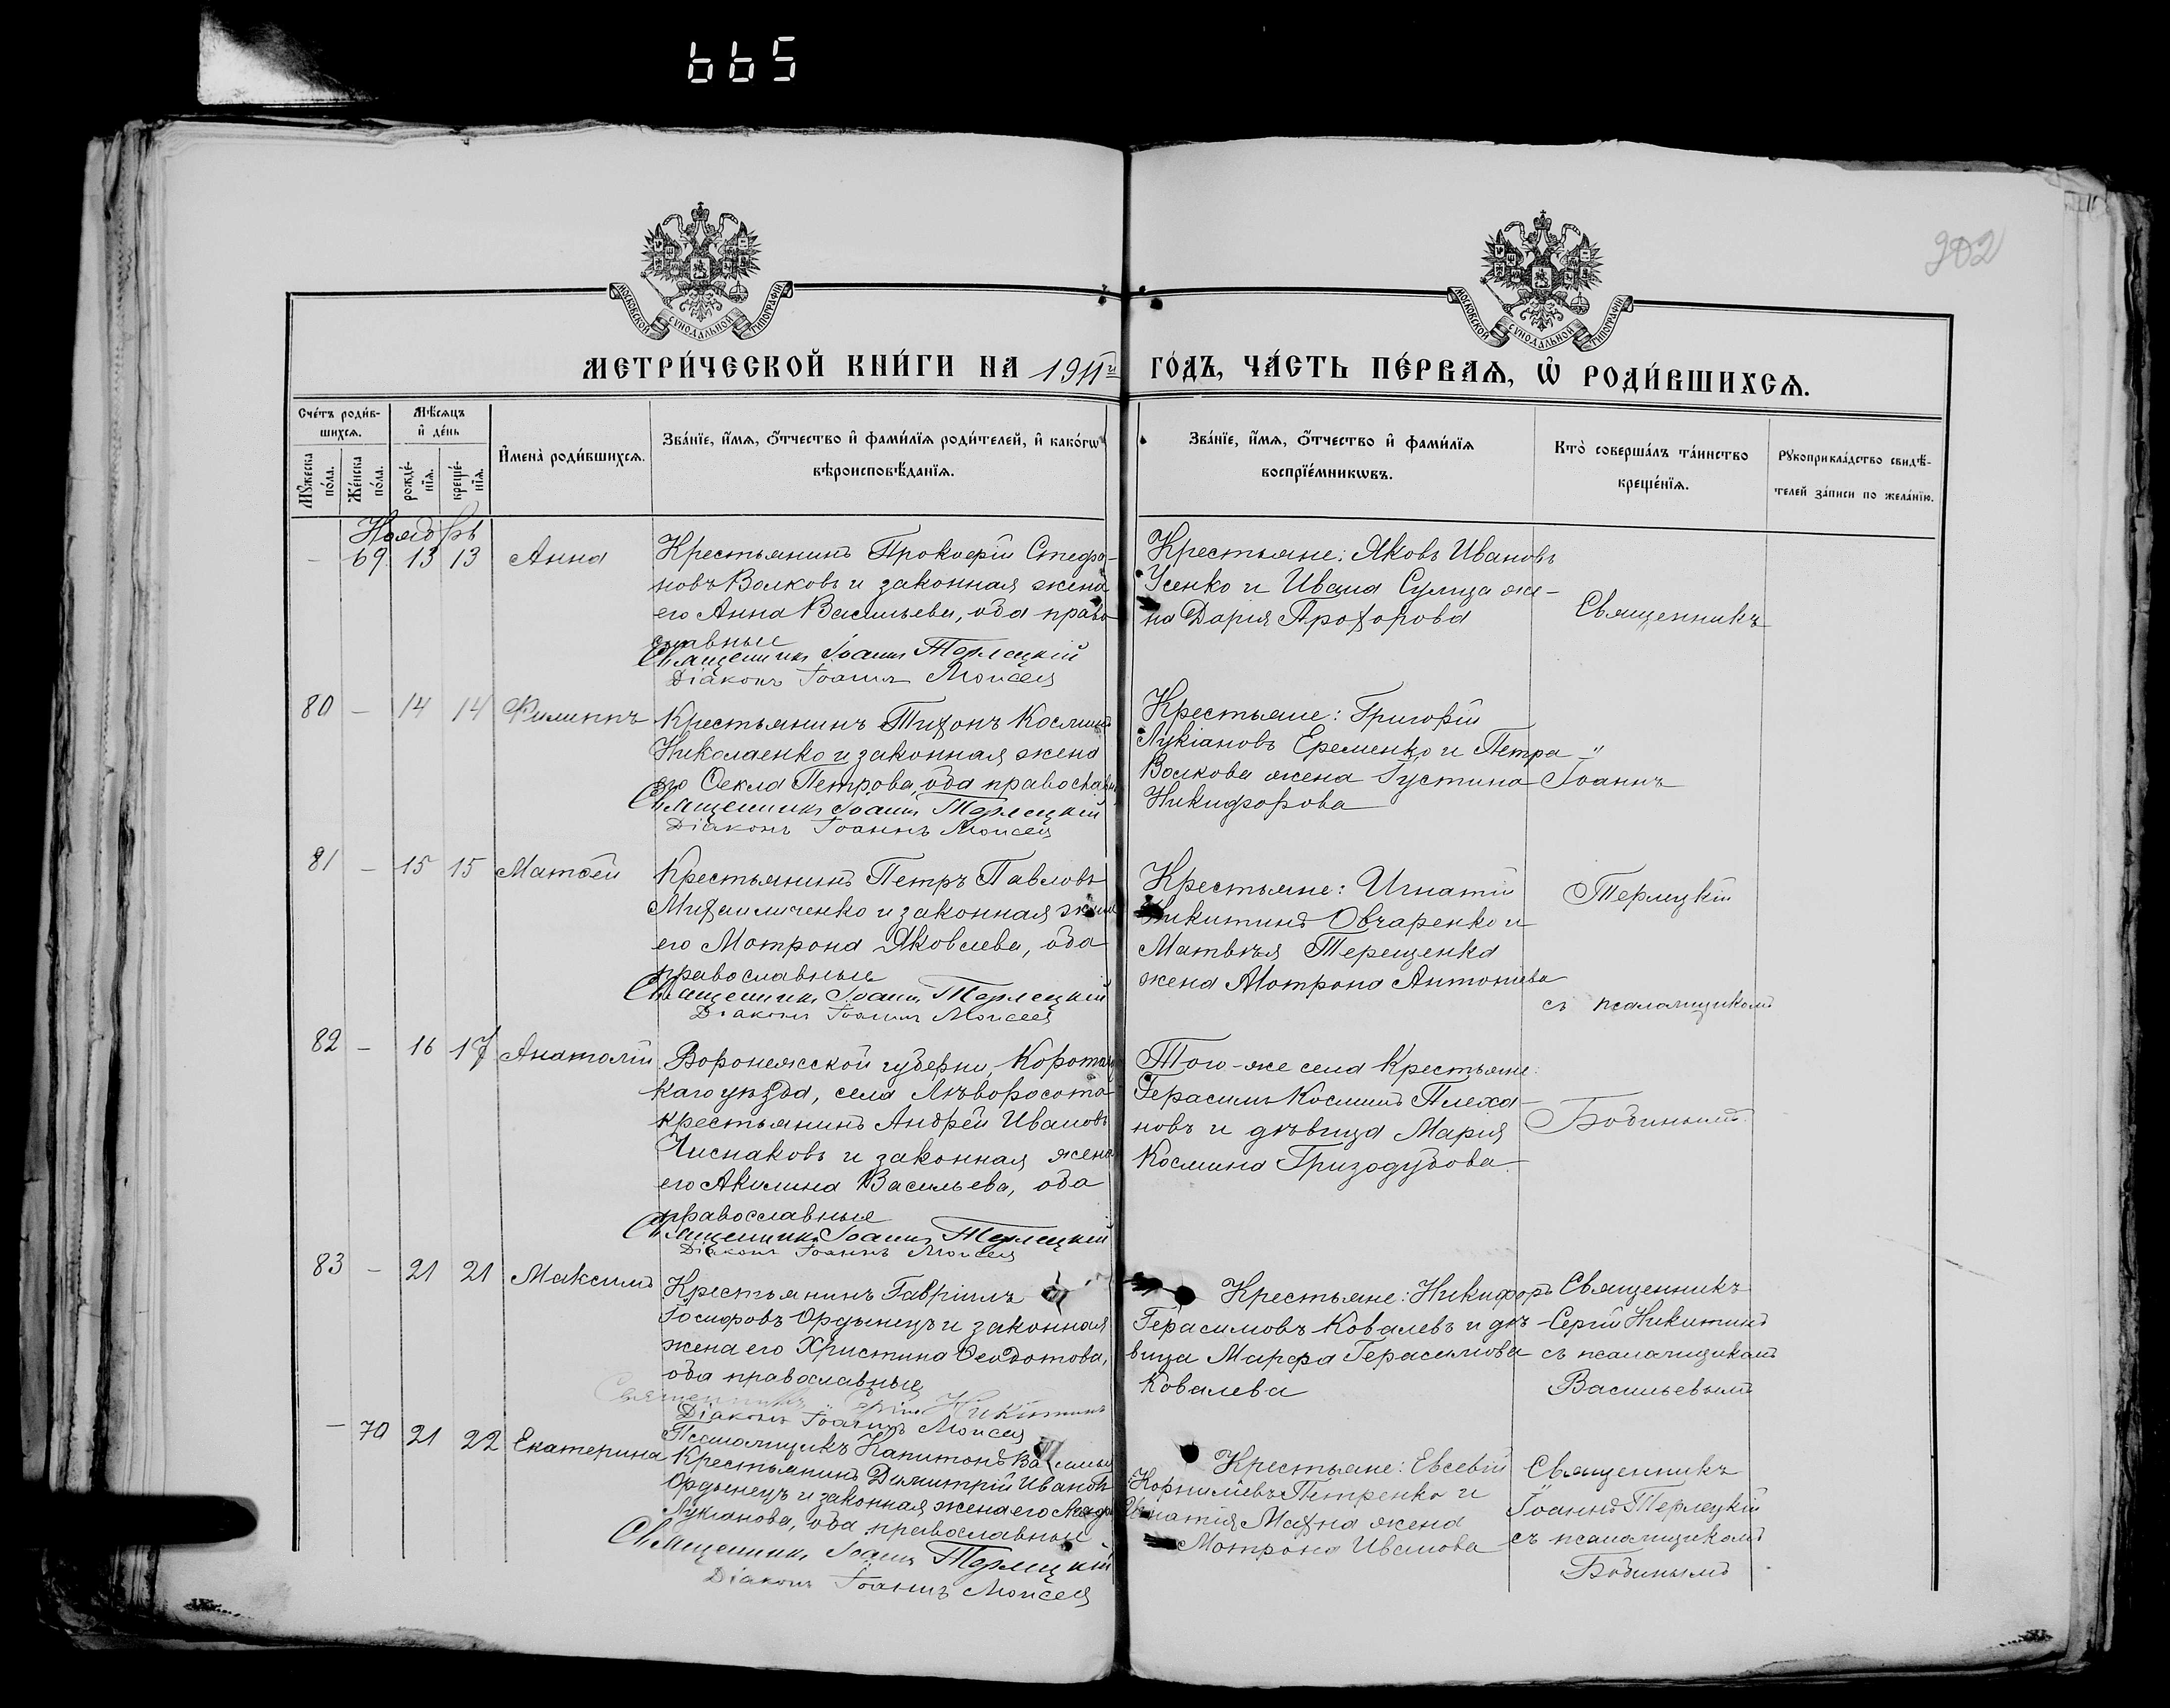 665
302
МОСКОВСКОЙ СѴНОДАЛЬНОЙ ТИПОГРАФІИ
МОСКОВСКОЙ СѴНОДАЛЬНОЙ ТИПОГРАФІИ
МЕТРИ́ЧЕСКОЙ КНИ́ГИ НА 1911й ГО́ДЪ, ЧА́СТЬ ПЕ́РВАѦ, Ѡ҆ РОДИ́ВШИХСѦ.
Сче́тъ роди́в-
шихсѧ.
Мѣ́сѧцъ
и҆ де́нь
Мꙋ́жеска по́ла.
Же́нска по́ла.
рожде́-
нїѧ.
креще́-
нїѧ.
И҆мена̀ роди́вшихсѧ.
Зва́нїе, и҆́мѧ, ѻ҆́тчество и҆ фами́лїѧ роди́телей, и҆ како́гѡ
вѣроисповѣ́данїѧ.
Зва́нїе, и҆́мѧ, ѻ҆́тчество и҆ фами́лїѧ
воспрїе́мникѡвъ.
Кто̀ соверша́лъ та́инство
креще́нїѧ.
Рꙋкоприкла́дство свидѣ́-
телей за́писи по жела́нїю.
Ноябрь
— 69 13 13 Анна
Крестьянинъ Прокофій Стефа-
новъ Волковъ и законная жена
его Анна Васильева, оба право
славные
Священникъ Іоаннъ Терлецкій
Діаконъ Іоаннъ Моисеи
Крестьяне: Яковъ Ивановъ
Усенко и Ивана Сулица же-
на Дарія Прохорова
Священникъ
80 — 14 14 Филиппъ
Крестьянинъ Тихонъ Косминъ
Николаенко и законная жена
его Ѳекла Петрова, оба православ
Священникъ Іоаннъ Терлецкій
Діаконъ Іоаннъ Моисеи
Крестьяне: Григорій
Лукіановъ Еременко и Петра
Волкова жена Іустина
Никифорова
Іоаннъ
81 — 15 15 Матѳей
Крестьянинъ Петръ Павловъ
Михаиличенко и законная жена
его Мотрона Яковлева, оба
православные
Священникъ Іоаннъ Терлецкій
Діаконъ Іоаннъ Моисеи
Крестьяне: Игнатій
Никитинъ Овчаренко и
Матвѣя Терещенка
жена Мотрона Антонiева
Терлецкій
съ псаломщикомъ
82 — 16 17 Анатолій
Воронежской губерніи, Коротоя
каго уѣзда, села
крестьянинъ Андрей Ивановъ
и законная жена
его Акилина Васильева, оба
православные
Священникъ Іоаннъ Терлецкій
Діаконъ Іоаннъ Моисеи
Того-же села крестьяне:
Герасимъ Косминъ Плеха-
новъ и дѣвица Марія
Космина Гризодубова
Бобинымъ
83 — 21 21 Максимъ
Крестьянинъ Гавріилъ
Іосифовъ Ордынецъ и законная
жена его Христина Ѳеодотова,
оба православные
Священникъ Никитинъ
Діаконъ Іоаннъ Моисеи
Псаломщикъ Капитонъ Васильев
Крестьяне: Никифоръ
Герасимовъ Ковалевъ и дѣ-
вица Марфа Герасимова
Ковалева
Священникъ
Сергій Никитинъ
съ псаломщикомъ
Васильевымъ
— 70 21 22 Екатерина
Крестьянинъ Димитрій Ивановъ
Ордынецъ и законная жена его
Лукіанова, оба православные
Священникъ Іоаннъ Терлецкій
Діаконъ Іоаннъ Моисеи
Крестьяне: Евсевій
Корниліевъ Петренко и
Игнатія Махна жена
Мотрона Иванова
Священникъ
Іоаннъ Терлецкій
съ псаломщикомъ
Бобинымъ